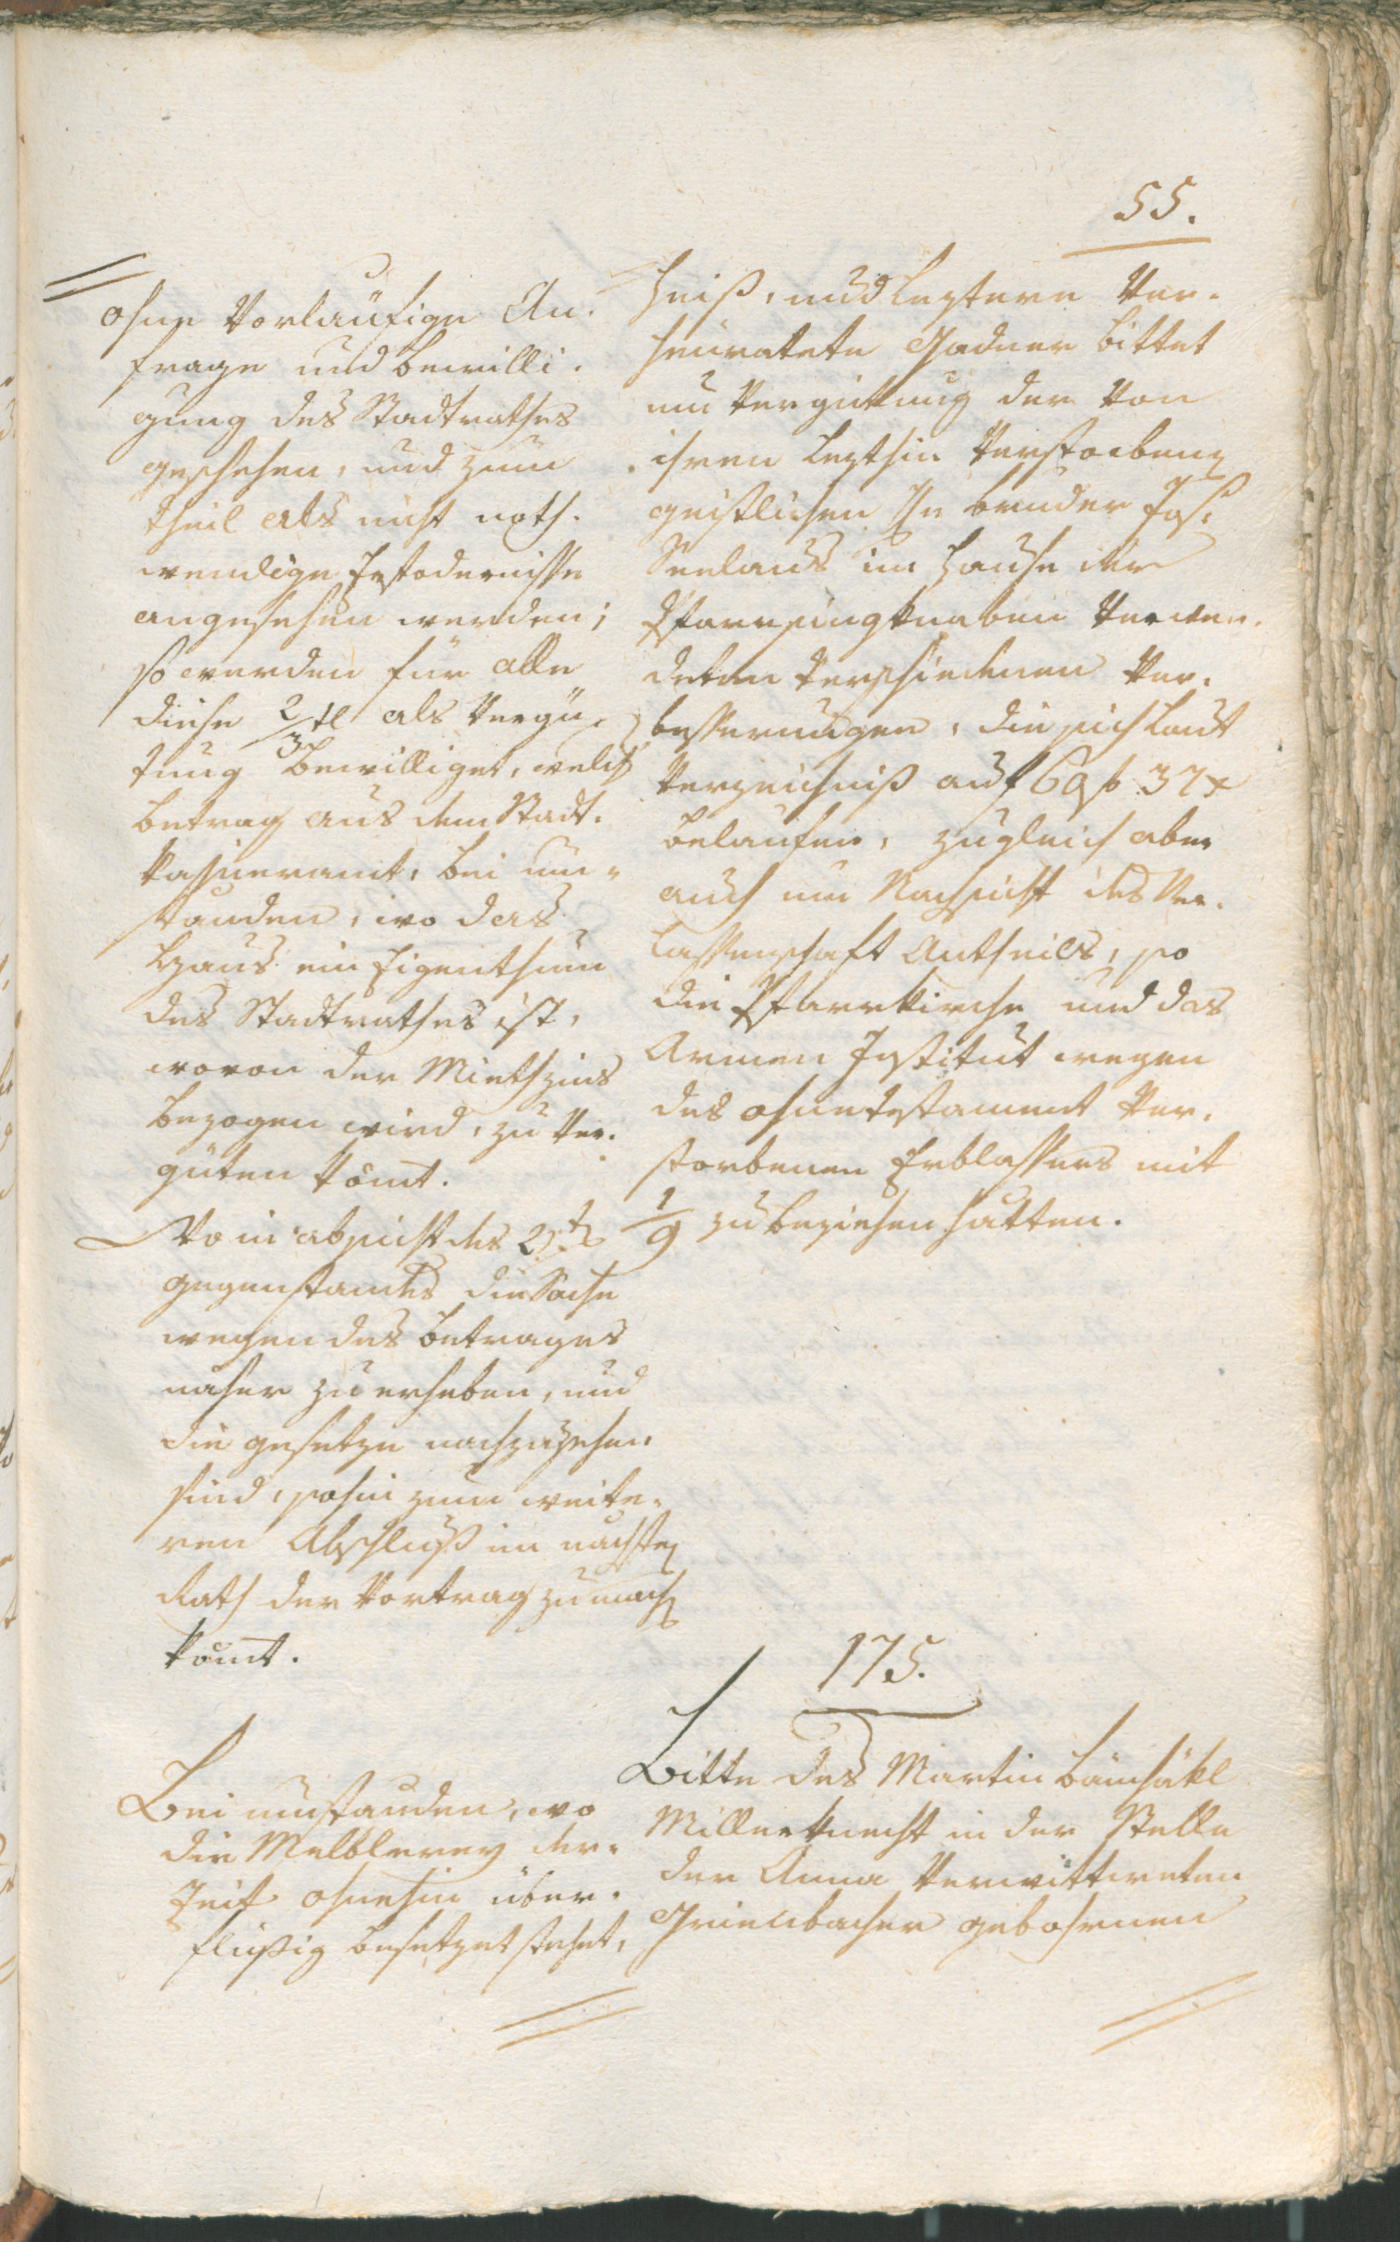 55.
ohne Vorlaüfige An-
frage und bewilli-
gung des Stadtrathes
geschehen, und zum
theil als nicht noth-
wendige Erfodernisse
angesehen werden;
so werden für alle
diese 2/3tl als Vergü-
tung bewilliget, welch
betrag aus dem Stadt-
kassieramt, bei um-
standen, wo das
Haus ein Eigenthum
des Stadtrathes ist,
wovon der Miethzins
bezogen wird, zu ver-
güten kömt.
Wo in absicht des 2ten
gegenstandes die Sache
wegen des betrages
naher zu erheben, und
die gesetze nachzusehen
sind, sohin zum weite-
ren Abschluß im nächsten
Rath der Vortrag zu machen
kömt.
Bei umstanden, wo
die Melblerey der-
zeit ohnehin über-
flüßig besetzet stehet,
heiß, und leztere Ver-
heüratete Gadner bittet
um Vergüttung der von
ihren lezthin Verstorbenen
geistlichen Hn bruder Jos:
Seelaus im Hause der
Pfarrsingknaben Verwen-
deten Verschiedenen Ver-
besserungen, die sich laut
Verzeichniß auf 69 f 37 x
belaufen, zugleich aber
auch um Nachsicht des Ver-
lassenschaft Antheils, so
die Pfarrkirche und das
Armen Institut wegen
des ohne testament Ver-
storbenen Erblassers mit
1/9 zu beziehen hatten.
175.
Bitte des Martin
Millerknecht in der Stelle
der Anna Verwittweten
Grienbacher gebohrnen